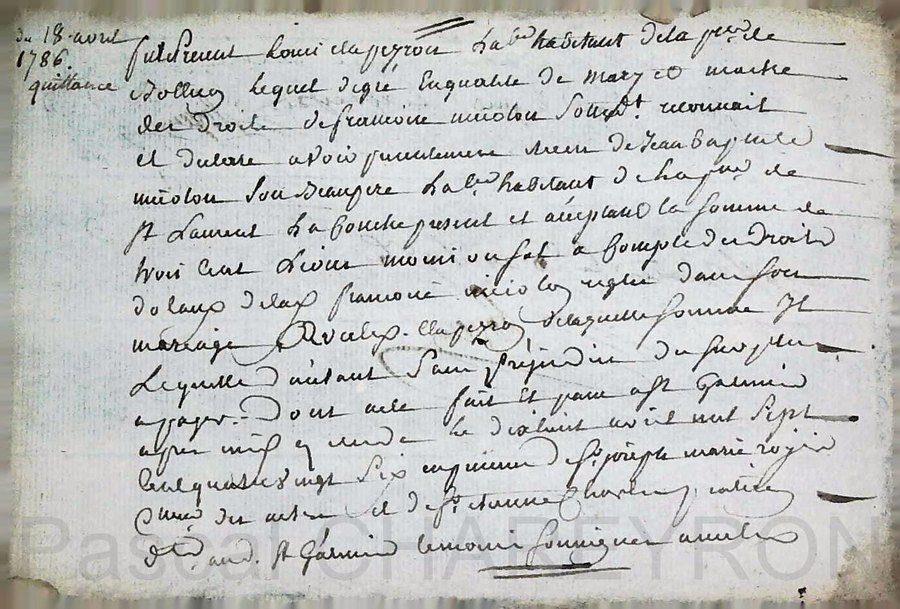 du 18 avril
1786.
quittance
fut present Louis clapeyron Lab.r habitant de la p.sse de
lequel de gré En qualité de mary et maitre
des Droits de francoise micolon son reconnait
et declare avoir presentement recu de Jean Baptiste
micolon son Beaupere Lab.r habitant de la p.sse de
st Laurent La Conche present et acceptant la somme de
trois Cent a Compte des Droits
dotaux de la francoise micolon reglés dans son
mariage avec led. clapeyron de laquelle somme Il
Le quitte d'autant sans prejudice du surplus
a payer. Dont acte fait et passé a st Galmier
apres midi le dix huit avril mil sept
Cent quatre vingt Six en presence de sr joseph marie
et de sr etienne
st Galmier temoins soussignés avec led
Pascal CHAREYRON